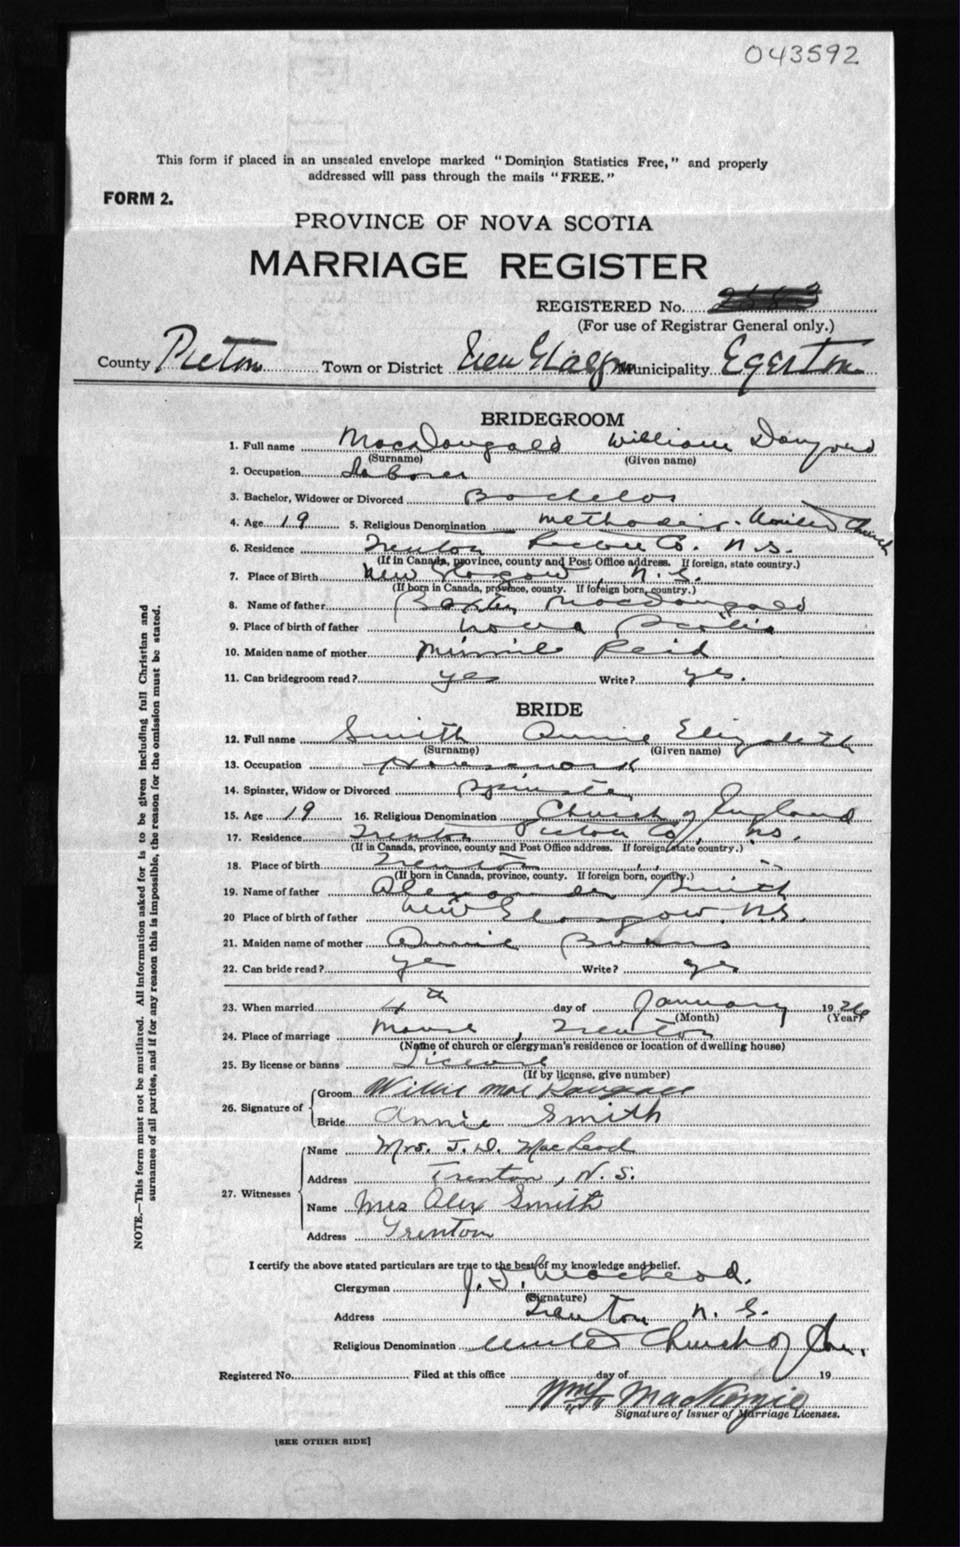 043592
This form if placed in an unsealed envelope marked "Dominion Statistics Free," and properly
addressed will pass through the mails "FREE."
FORM 2.
PROVINCE OF NOVA SCOTIA
MARRIAGE REGISTER
REGISTERED No.
(For use of Registrar General only.)
County Pictou Town or District New Glasgow Municipality Egerton
BRIDEGROOM
1. Full name MacDougald William
(Surname) (Given name)
2. Occupation Laborer
3. Bachelor, Widower or Divorced Bachelor
4. Age 19 5. Religious Denomination Methodist - United Church
6. Residence Trenton Pictou Co. N.S.
(If in Canada, province, county and Post Office address. If foreign, state country.)
7. Place of Birth New Glasgow N.S.
(If born in Canada, province, county. If foreign born, country.)
8. Name of father Baxter MacDougald
9. Place of birth of father Nova Scotia
10. Maiden name of mother Minnie Reid
11. Can bridegroom read? yes Write? yes.
BRIDE
12. Full name Smith Annie Elizabeth
(Surname) (Given name)
13. Occupation Housework
14. Spinster, Widow or Divorced Spinster
15. Age 19 16. Religious Denomination Church of England
17. Residence Trenton Pictou Co, N.S.
(If in Canada, province, county and Post Office address. If foreign, state country.)
18. Place of birth Trenton " "
(If born in Canada, province, county. If foreign born, country.)
19. Name of father Alexander Smith
20 Place of birth of father New Glasgow. N.S.
21. Maiden name of mother Annie
22. Can bride read? yes Write? yes
23. When married 4th day of January 1926
(Month) (Year)
24. Place of marriage Manse, Trenton
(Name of church or clergyman's residence or location of dwelling house)
25. By license or banns License
(If by license, give number)
26. Signature of Groom Willie MacDougall
Bride Annie Smith
27. Witnesses Name Mrs. J. D. MacLeod
Address Trenton, N.S.
Name Mrs Alex Smith
Address Trenton
I certify the above stated particulars are true to the best of my knowledge and belief.
Clergyman J. D. MacLeod.
(Signature)
Address Trenton N. S.
Religious Denomination United Church of Can.
Registered No. Filed at this office day of 19
MacKenzie
Signature of Issuer of Marriage Licenses.
[SEE OTHER SIDE]
NOTE.—This form must not be mutilated. All information asked for is to be given including full Christian and
surnames of all parties, and if for any reason this is impossible, the reason for the omission must be stated.